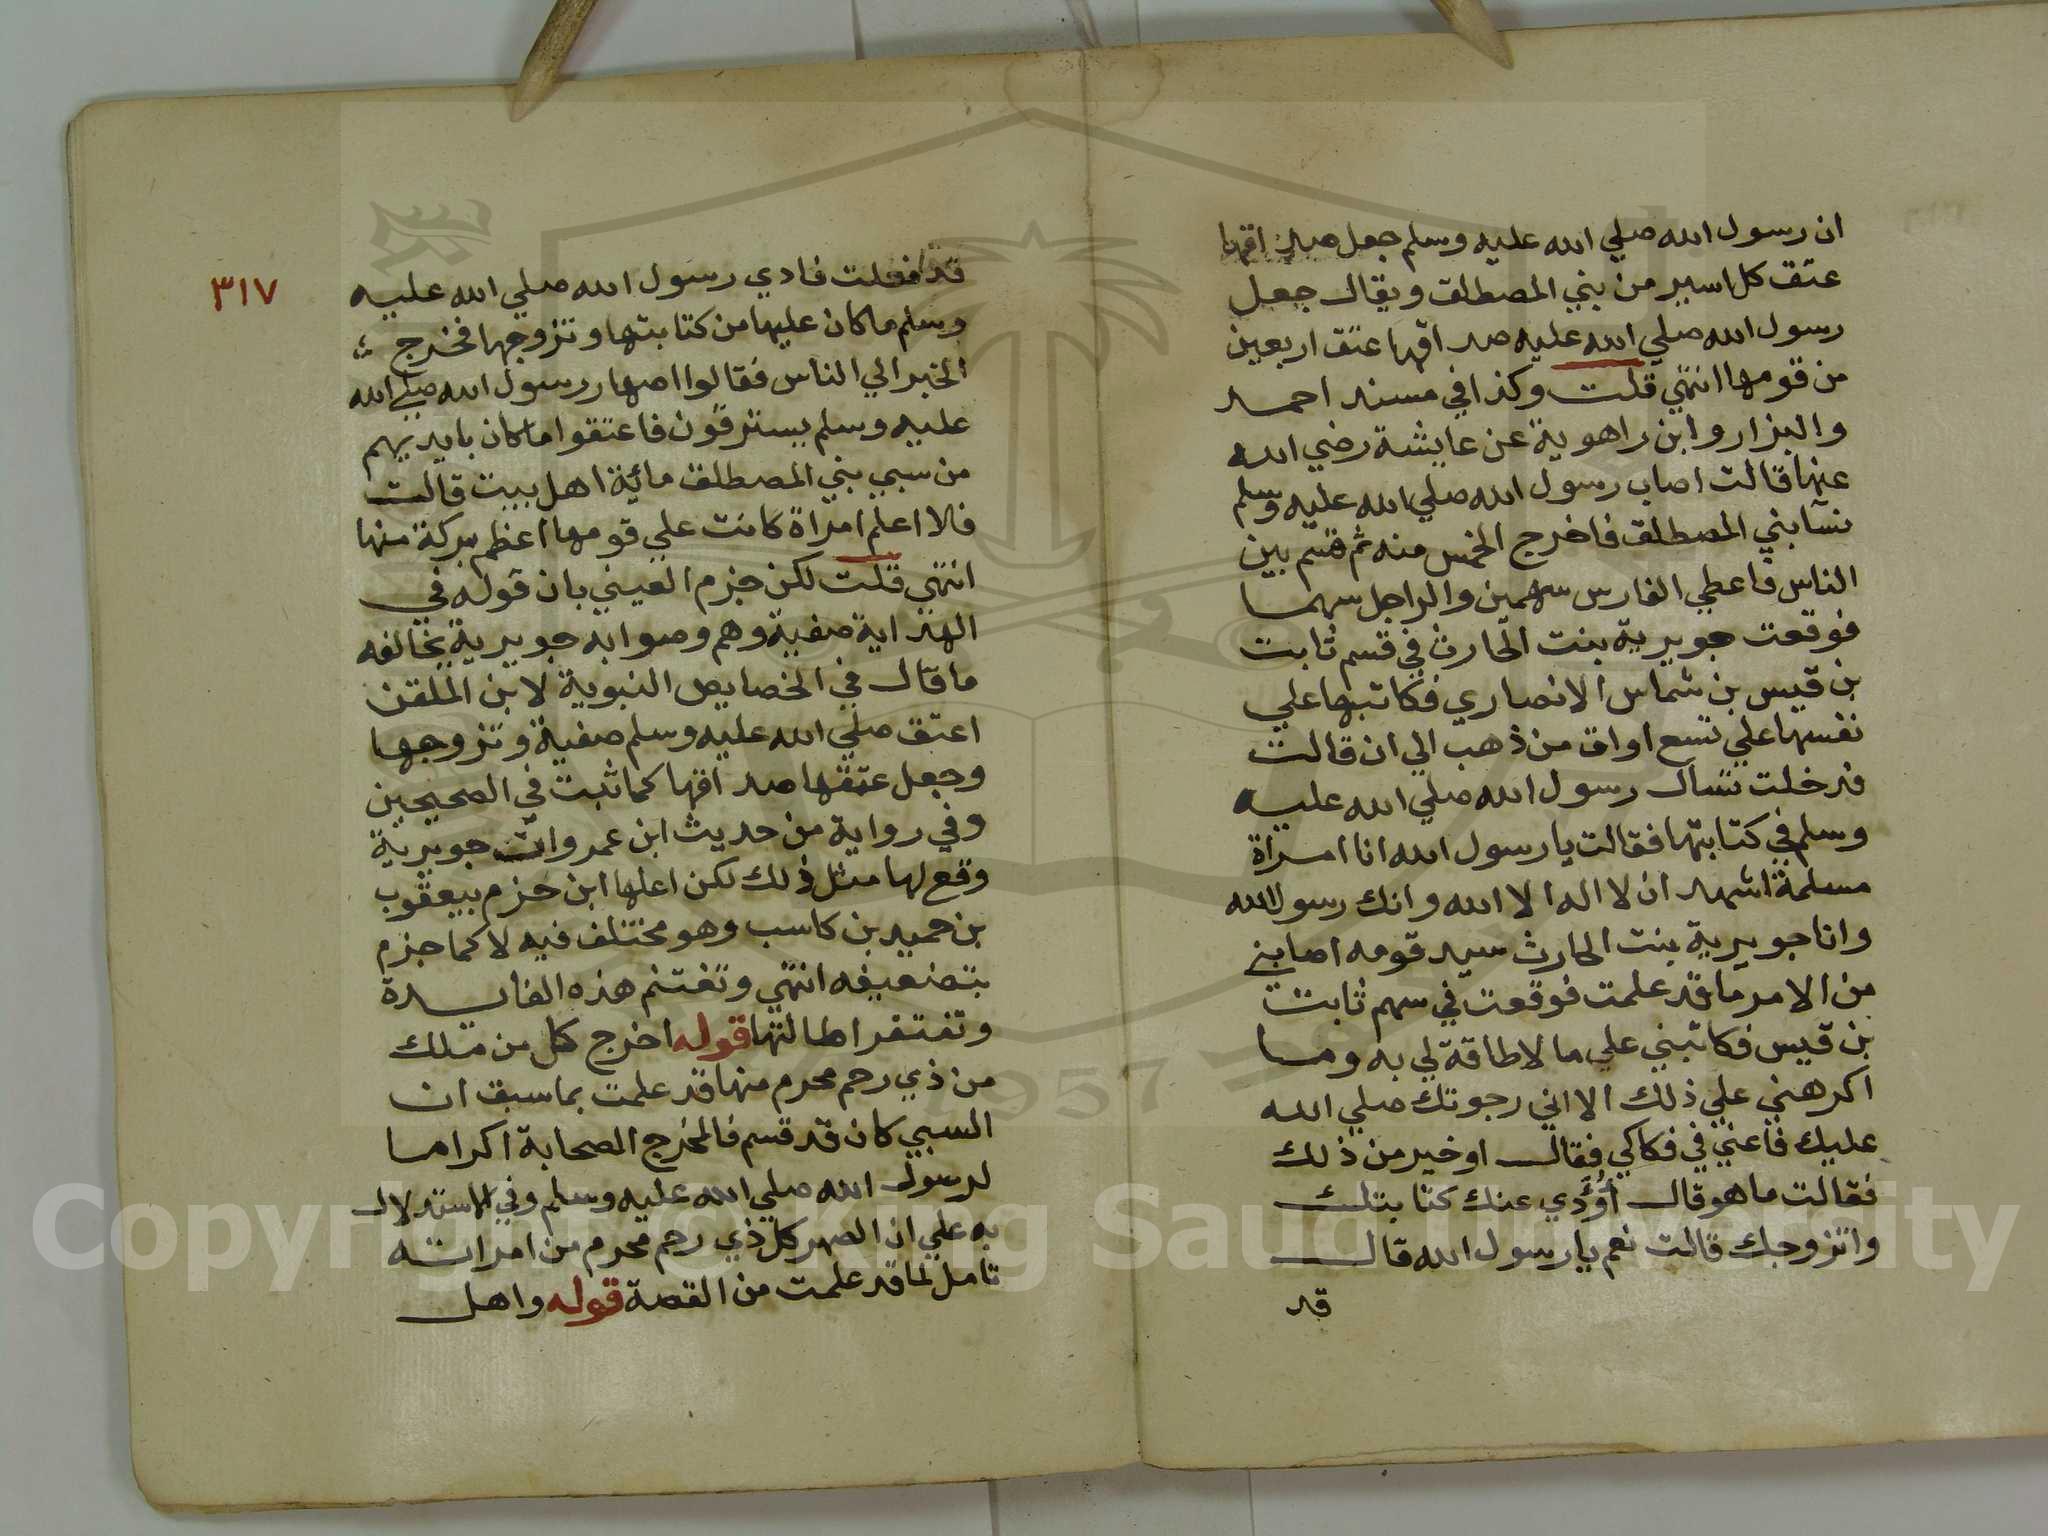 ان رسول الله صلي الله عليه وسلم جعل صداقها
عتق كل اسير من بني المصطلق ويقال جعل
رسول الله صلي الله عليه صداقها عتق اربعين
من قومها انتهي قلت وكذا في مسند احمد
والبزار وابن راهوية عن عايشة رضي الله
عنها قالت اصاب رسول الله صلي الله عليه وسلم
نسآ بني المصطلق فاخرج الخمس منه ثم قسم بين
الناس فاعطي الفارس سهمين والراجل سهما
فوقعت جويرية بنت الحارث في قسم ثابت
بن قيس بن شماس الانصاري فكاتبها علي
نفسها علي تسع اواق من ذهب الي ان قالت
فدخلت تسأل رسول الله صلي الله عليه
وسلم في كتابتها فقالت يا رسول الله انا امراة
مسلمة اشهد ان لا اله الا الله وانك رسول الله
وانا جويرية بنت الحارث سيد قومه اصابني
من الامر ما قد علمت فوقعت في سهم ثابت
بن قيس فكاتبني علي ما لا طاقة لي به وما
اكرهني علي ذلك الا اني رجوتك صلي الله
عليك فاعني في فكاكي فقال او خير من ذلك
فقالت ما هو قال أُؤَدي عنك كتابتك
واتزوجك قالت نعم يا رسول الله قال
قد
٣١٧
قد فعلت فادي رسول الله صلي الله عليه
وسلم ما كان عليها من كتابتها وتزوجها فخرج
الخبر الي الناس فقالوا اصهار رسول الله صلي الله
عليه وسلم يسترقون فاعتقوا ما كان بايديهم
من سبي بني المصطلق مائة اهل بيت قالت
فلا اعلم امراة كانت علي قومها اعظم بركة منها
انتهي قلت لكن جزم العيني بان قوله في
الهداية صفية وهم وصوابه جويرية يخالفه
ما قال في الخصايص النبوية لابن الملقن
اعتق صلي الله عليه وسلم صفية وتزوجها
وجعل عتقها صداقها كما ثبت في الصحيحين
وفي رواية من حديث ابن عمر وان جويرية
وقع لها مثل ذلك لكن اعلها ابن حزم بيعقوب
بن حميد بن كاسب وهو مختلف فيه لا كما جزم
بتضعيفه انتهي وتغتنم هذه الفائدة
وتغتفر اطالتها قوله اخرج كل من ملك
من ذي رحم محرم منها قد علمت بما سبق ان
السبي كان قد قسم فالمخرج الصحابة اكراما
لرسول الله صلي الله عليه وسلم وفي الاستدلال
به علي ان الصهر كل ذي رحم محرم من امراته
تامل لما قد علمت من القصة قوله واهل
Copyright © King Saud University
1957